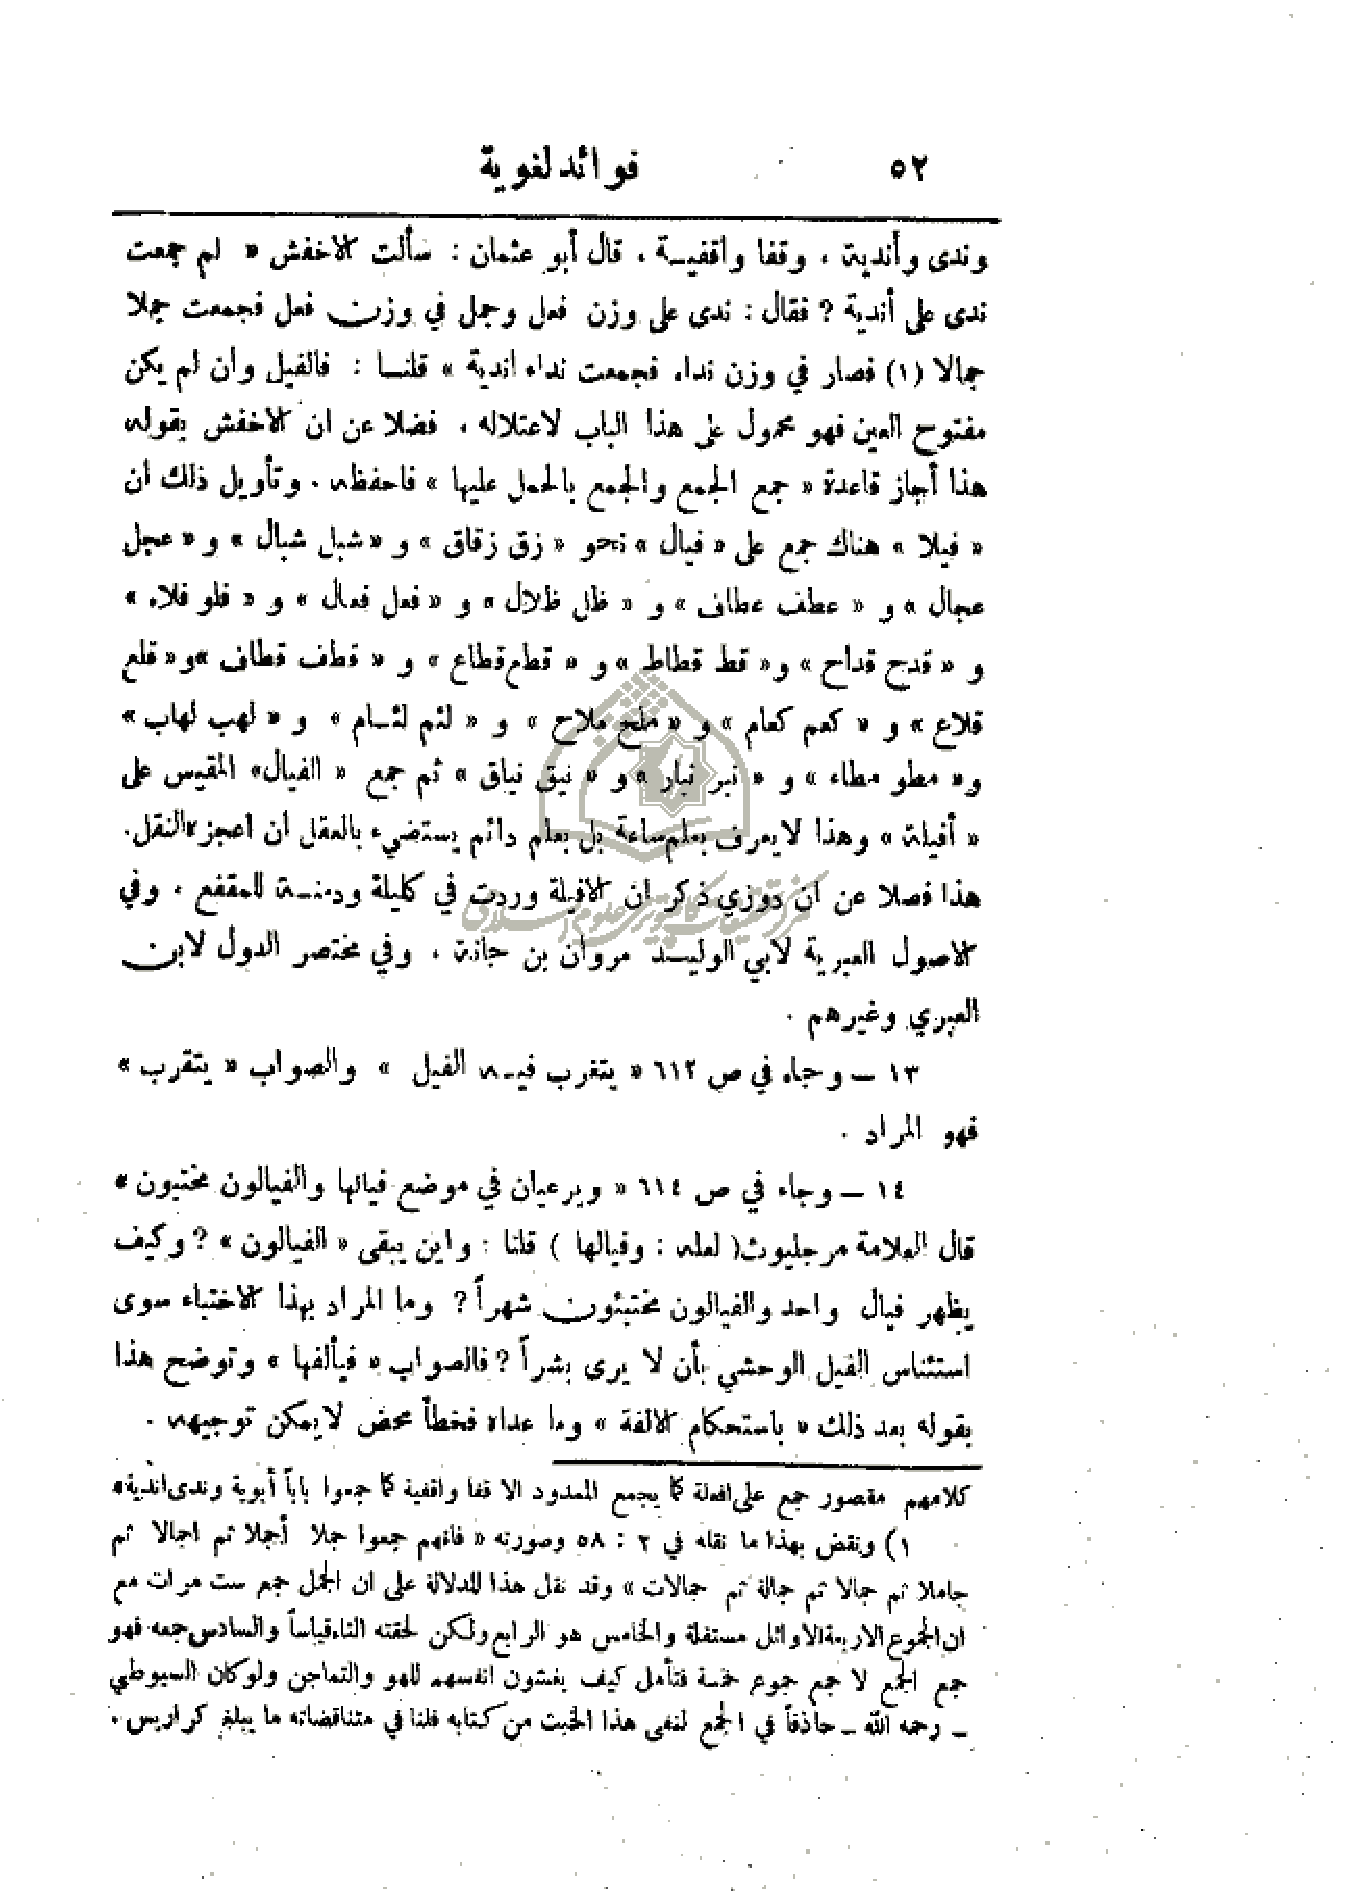 ٥٢
فوائد لغوية
وندى وأندية ، وقفا واقفيـة ، قال أبو عثمان : سألت الاخفش « لم جمعت
ندى على أندية ؟ فقال : ندى على وزن فعل وجمل في وزن فعل فجمعت جملا
جمالا (١) فصار في وزن نداء فجمعت نداء اندية » قلنـا : فالفيل وان لم يكن
مفتوح العين فهو محمول على هذا الباب لاعتلاله ، فضلا عن ان الاخفش بقوله
هذا أجاز قاعدة « جمع الجمع والجمع بالحمل عليها » فاحفظه . وتأويل ذلك ان
« فيلا » هناك جمع على « فيال » نحو « زق زقاق » و « شبل شبال » و « عجل
عجال » و « عطف عطاف » و « ظل ظلال » و « فعل فعال » و « فلو فلاء »
و « قدح قداح » و « قط قطاط » و « قطع قطاع » و « قطف قطاف » و « قلع
قلاع » و « كعم كعام » و « ملح ملاح » و « لئم لئـام » و « لهب لهاب »
و « مطو مطاء » و « نبر نبار » و « نيق نياق » ثم جمع « الفيال » المقيس على
« أفيلة » وهذا لايعرف بعلم ساعة بل بعلم دائم يستضيء بالعقل ان اعجزه النقل.
هذا فصلا عن ان دوزي ذكر ان الافيلة وردت في كليلة ودمنـة للمقفع ، وفي
الاصول العبرية لابي الوليـد مروان بن جانة ، وفي مختصر الدول لابن
العبري وغيرهم .
مركز تحقيقات كامپيوترى علوم اسلامى
١٣ ــ وجاء في ص ٦١٢ « يتغرب فيـه الفيل » والصواب « يتقرب »
فهو المراد .
١٤ ــ وجاء في ص ٦١٤ « ويرعيان في موضع فيائها والفيالون مختبون »
قال العلامة مرجليوث ( لعله : وفيالها ) قلنا : واين يبقى « الفيالون » ؟ وكيف
يظهر فيال واحد والفيالون مختبئون شهراً ؟ وما المراد بهذا الاختباء سوى
استئناس الفيل الوحشي بأن لا يرى بشراً ؟ فالصواب « فيألفها » وتوضح هذا
بقوله بعد ذلك « باستحكام الالفة » وما عداه فخطأ محض لايمكن توجيهه .
كلامهم مقصور جمع على افعلة كما يجمع الممدود الا قفا واقفية كما جمعوا باباً أبوبة وندى اندية»
١) ونقض بهذا ما نقله في ٢ : ٥٨ وصورته « فانهم جمعوا جملا أجملا ثم اجمالا ثم
جاملا ثم جمالا ثم جمالة ثم جمالات » وقد نقل هذا للدلالة على ان الجمل جمع ست مرات مع
ان الجموع الاربعة الاوائل مستقلة والخامس هو الرابع ولكن لحقته التاء قياساً والسادس جمعه فهو
جمع الجمع لا جمع جموع خمسة فتأمل كيف يغشون انفسهم للهو والتماجن ولوكان السيوطي
ــ رحمه الله ــ حاذقاً في الجمع لنفى هذا الخبث من كتابه فلنا في متناقضاته ما يبلغ كراريس .